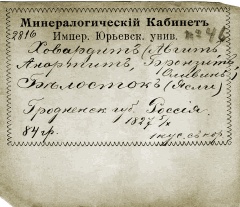 Минералогическій Кабинетъ
Импер. Юрьевск. унив. № 46
8816
Ховардитъ (Авгитъ,
Анортитъ, Бронзитъ,
Оливинъ)
Бѣлостокъ (Ясли)
Гродненск. губ. Россія.
1827 5/X
84 гр. 1 кус. съ кор.